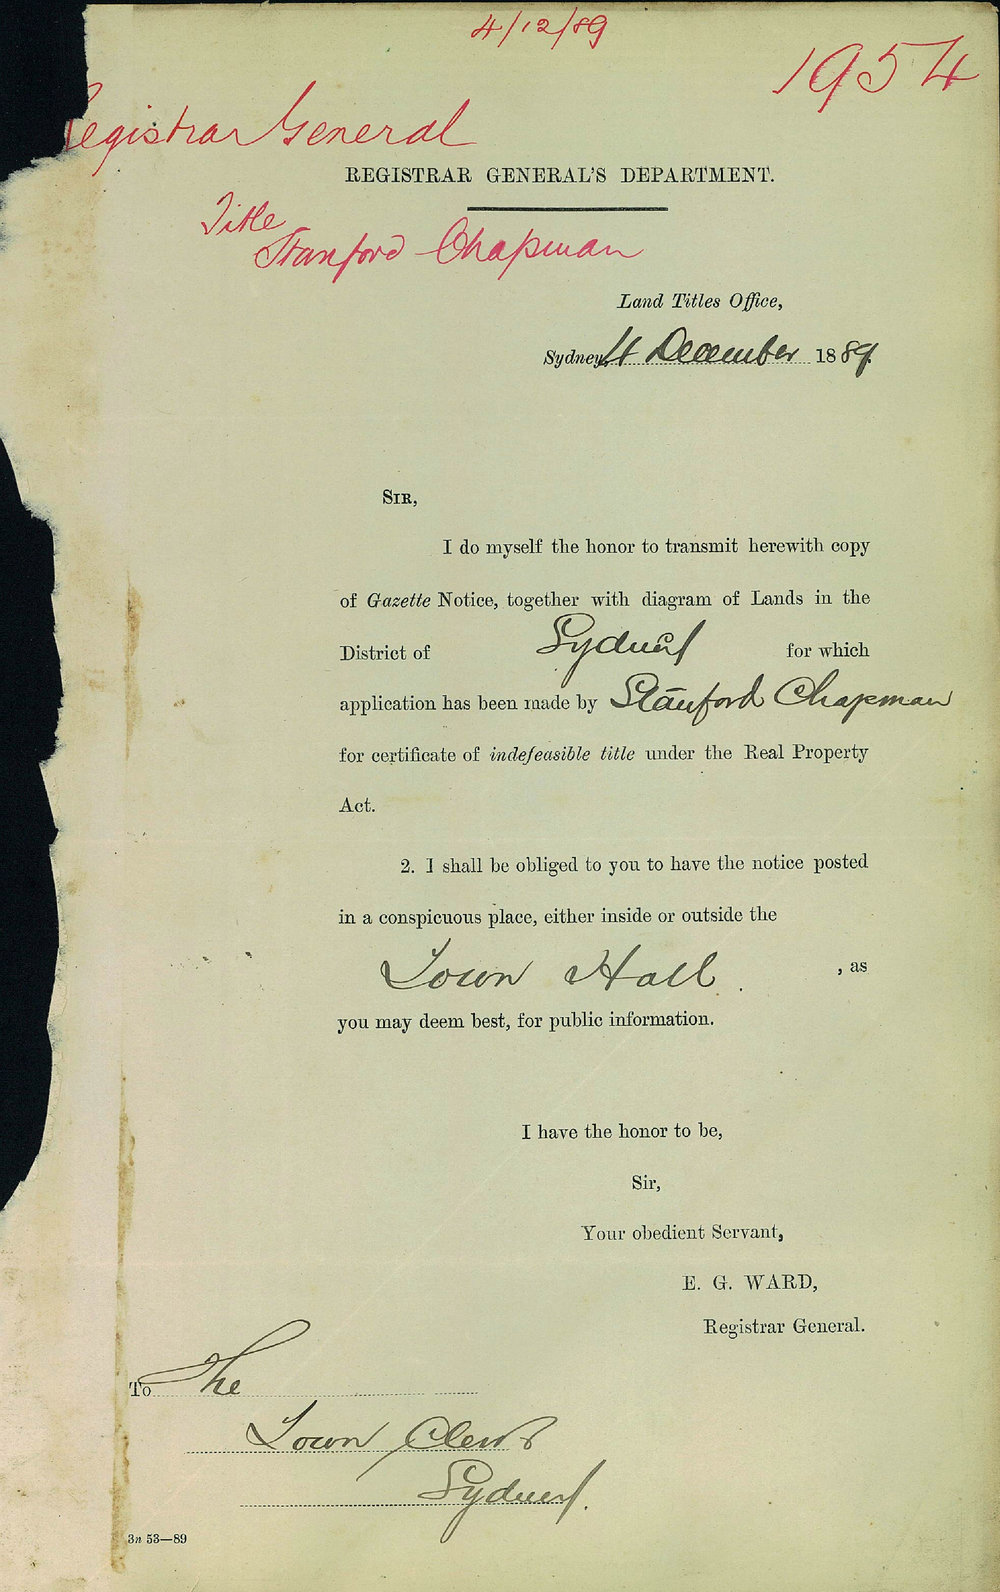 4/12/89
1954
Registrar General
REGISTRAR GENERAL'S DEPARTMENT.
Title
Stanford Chapman
Land Titles Office,
Sydney, 4 December 1889.
SIR,
I do myself the honor to transmit herewith copy
of Gazette Notice, together with diagram of Lands in the
District of Sydney for which
application has been made by Stanford Chapman
for certificate of indefeasible title under the Real Property
Act.
2. I shall be obliged to you to have the notice posted
in a conspicuous place, either inside or outside the
Town Hall , as
you may deem best, for public information.
I have the honor to be,
Sir,
Your obedient Servant,
E. G. WARD,
Registrar General.
To The
Town Clerk
Sydney.
3n 53—89